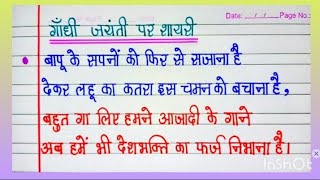 Date: __/__/__ Page No:
गाँधी जयंती पर शायरी
• बापू के सपनों को फिर से सजाना है
देकर लहू का कतरा इस चमन को बचाना है,
बहुत गा लिए हमने आजादी के गाने
अब हमें भी देशभक्ति का फर्ज निभाना है।
InShOt